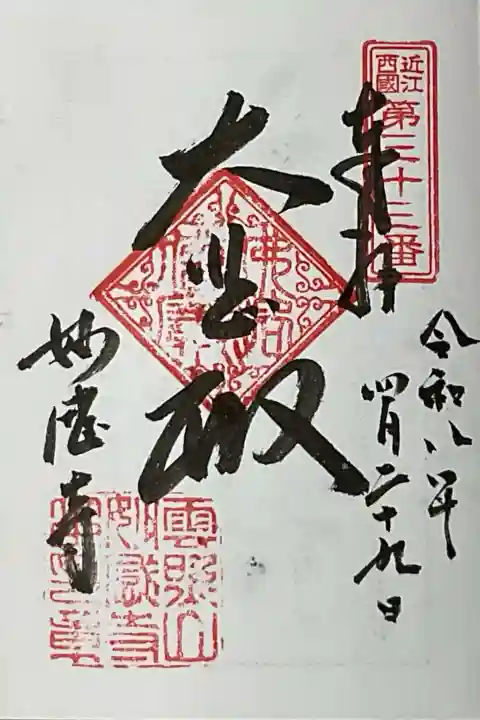 近江
西國
第三十三番
奉拝
令和八年
四月二十九日
大悲殿
妙感寺
雲照山
妙感寺